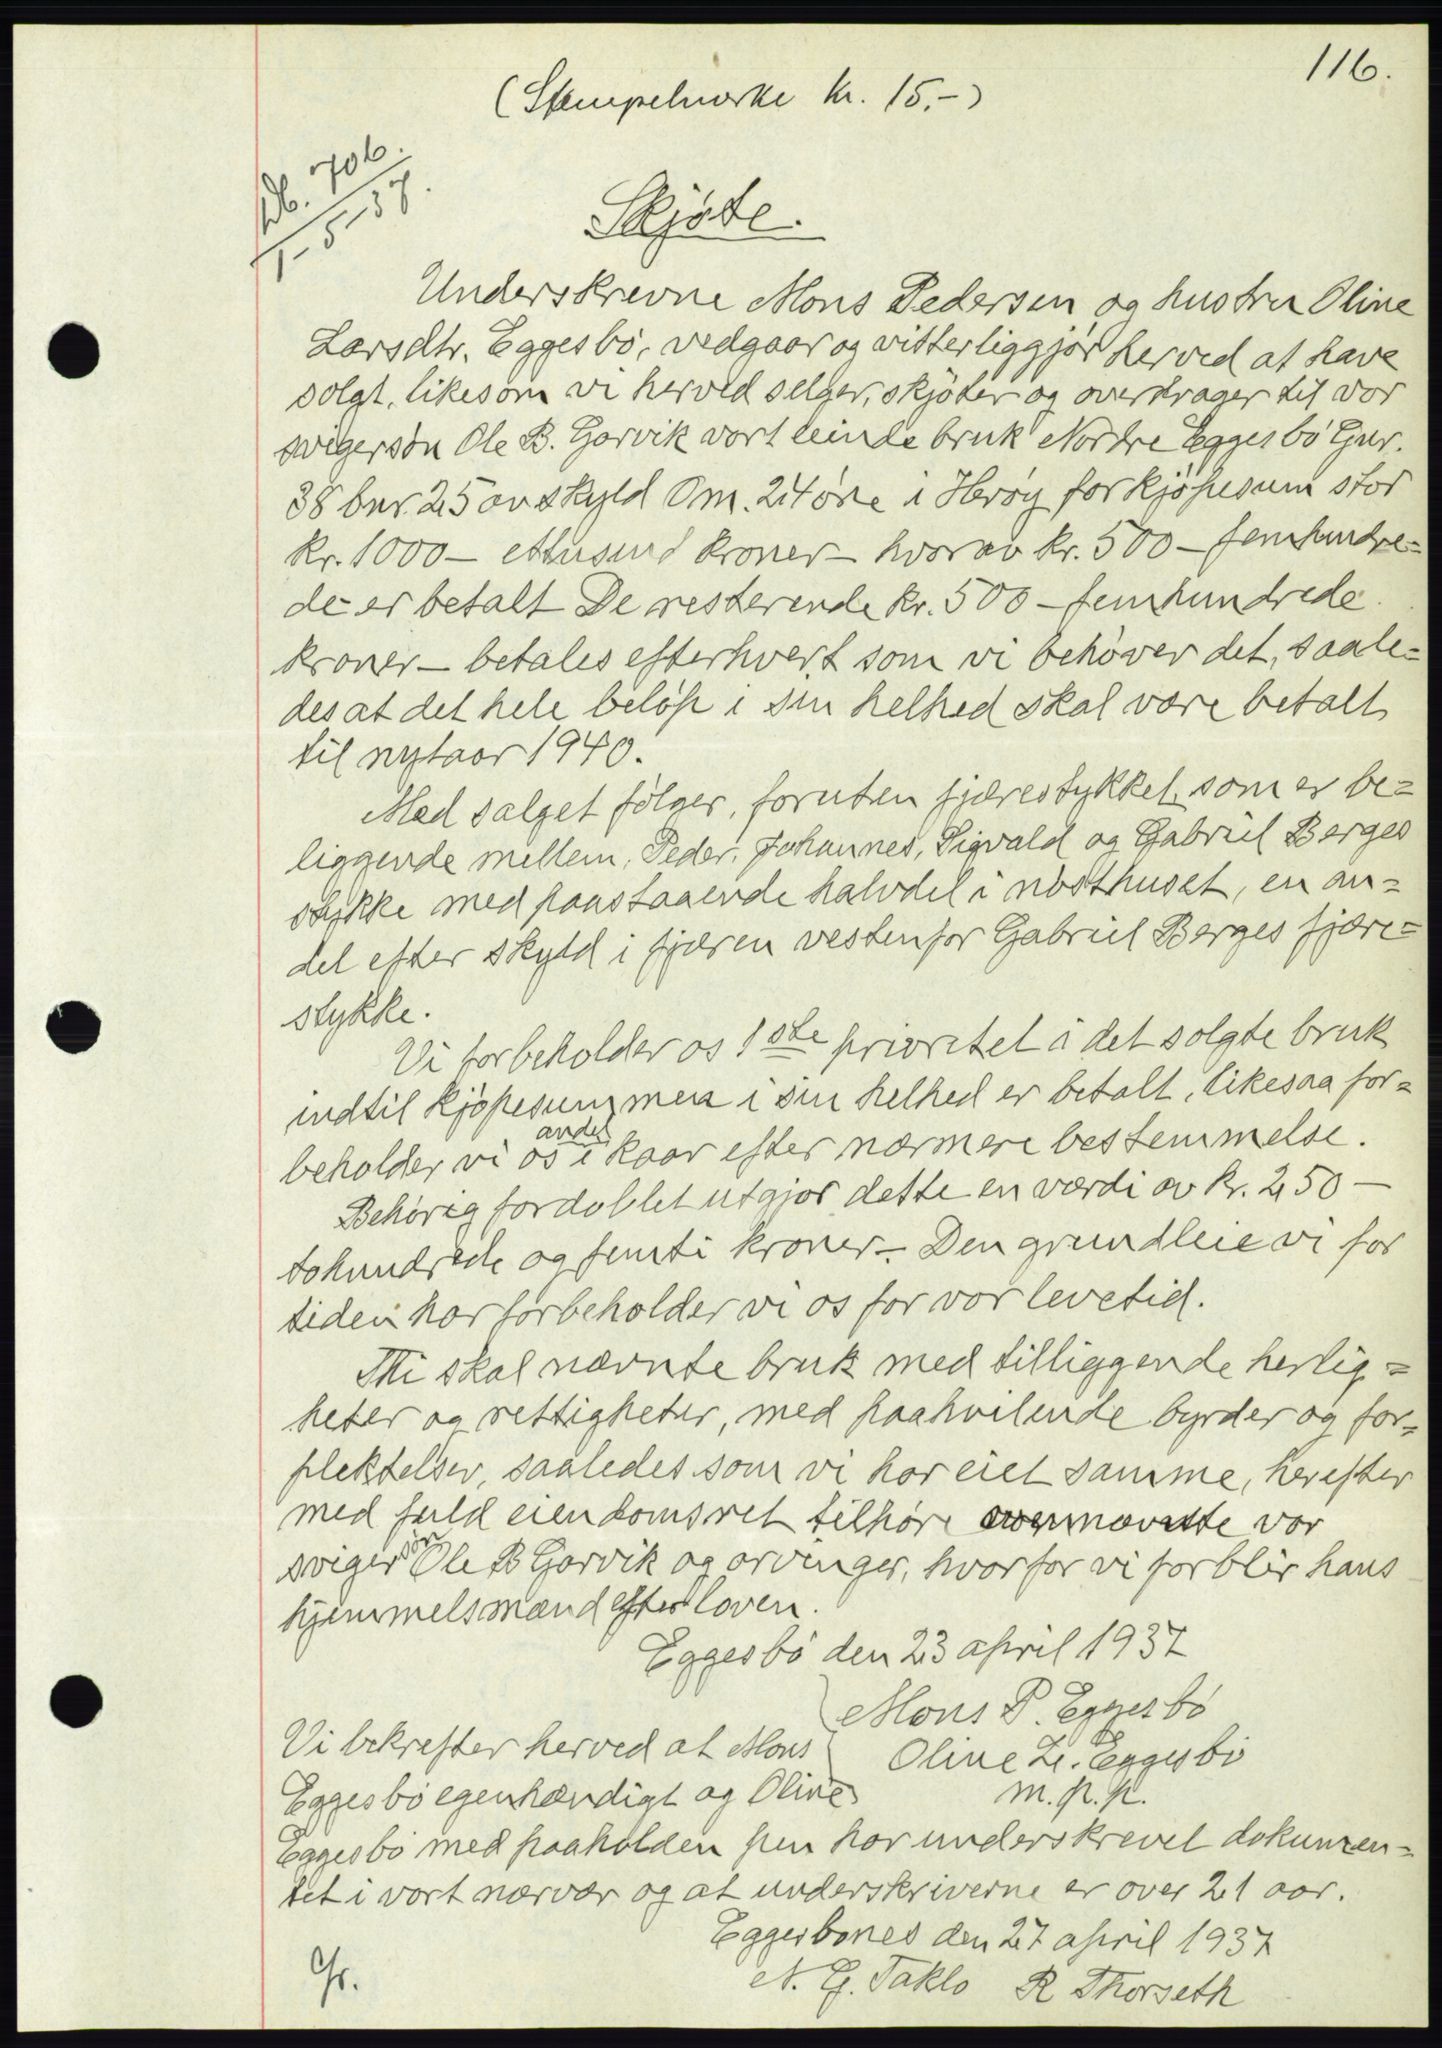 116.
(Stempelmerke kr. 15.-)
Db. 706.
1-5-37.
Skjøte.
Underskrevne Mons Pedersen og hustru Oline
Larsdtr. Eggesbö, vedgaar og vitterliggjör herved at have
solgt, likesom vi herved selger, skjöter og overdrager til vor
svigersön Ole B. Garvik vort eiende bruk Nordre Eggesbö Gnr.
38 bnr. 25 av skyld 0 m. 24 öre i Heröy for kjöpesum stor
kr. 1000 - ettusind kroner - hvorav kr. 500 - femhundre=
de - er betalt De resterende kr. 500 - femhundrede
kroner - betales efterhvert som vi behöver det, saale=
des at det hele belöp i sin helhed skal være betalt
til nytaar 1940.
Med salget fölger, foruten fjærestykket, som er be=
liggende mellem, Peder, Johannes, Sigvald og Gabriel Berges
stykke med paastaaende halvdel i nösthuset, en an=
del efter skyld i fjæren vestenfor Gabriel Berges fjære=
stykke.
Vi forbeholder os 1ste prioritet i det solgte bruk
indtil kjöpesummen i sin helhed er betalt, likesaa for=
beholder vi os andel i kaar efter nærmere bestemmelse.
Behörig fordoblet utgjör dette en værdi av kr. 250 -
tohundrede og femti kroner -. Den grundleie vi for
tiden har forbeholder vi os for vor levetid.
Thi skal nævnte bruk med tilliggende herlig=
heter og rettigheter, med paahvilende byrder og for=
plektelser, saaledes som vi har eiet samme, herefter
med fuld eiendomsret tilhöre overnævnte vor
svigersön Ole B Garvik og arvinger, hvorfor vi forblir hans
hjemmelsmænd efter loven.
Eggesbö den 23 april 1937
Mons P. Eggesbö
Oline L. Eggesbö
m. p. p.
Vi bekrefter herved at Mons
Eggesbö egenhændigt og Oline
Eggesbö med paaholden pen har underskrevet dokumen=
tet i vort nærvær og at underskriverne er over 21 aar.
Eggesbönes den 27 april 1937
N. G. Taklo R Thorseth
Gr.